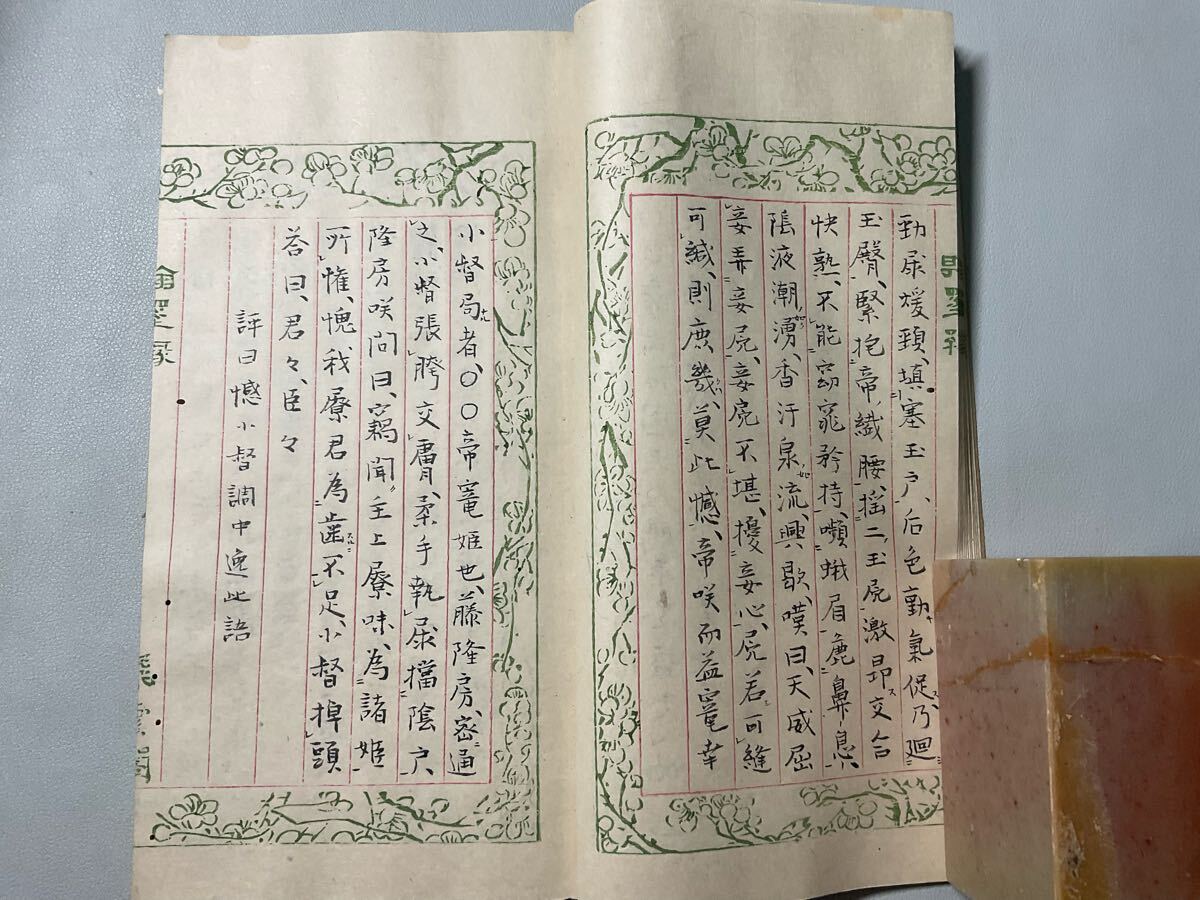 勁㞗煖頸、填塞玉戸、后色動氣促、乃廻
玉臀、緊抱帝纖腰、揺二、玉屄激昂交合
快熟、不能窈窕矜持、嚬蛾眉麁鼻息、
陰液潮湧、香汗泉流、興歇、嘆曰、天威屈
妾弄妾屄、妾屄不堪、擾妾心、屄若可縫
可緘、則庶幾莫此憾、帝咲而益寵幸
小督局者、〇〇帝寵姫也、藤隆房、密通
之、小督張胯交、柔手執㞗擋陰戸
隆房咲問曰、竊聞、主上㞗味、為諸姫
所懽、愧我㞗君為歯不足、小督掉頭
荅曰、君々、臣々
評曰憾小督調中逸此語
翰墨縁